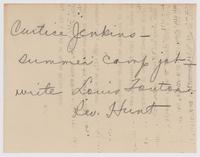 Curtice Jenkins —
summer camp job —
write Louis Fenton.
Rev. Hunt